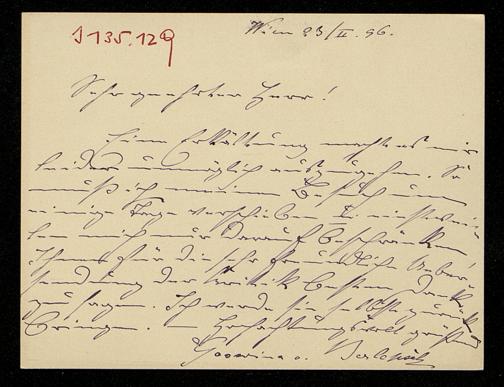 I 135.129
Wien 23/II. 96.
Sehr geehrter Herr!
Eine Erkältung macht es mir
leider unmöglich auszugehen. So
muß ich meinen Besuch um
einige Tage verschieben &
mich nur darauf beschränken
Ihnen für die sehr freundliche Ueber-
sendung der Kritik besten Dank
zu sagen. Ich werde sie selbst zurück
bringen. — Hochachtungsvoll grüßend